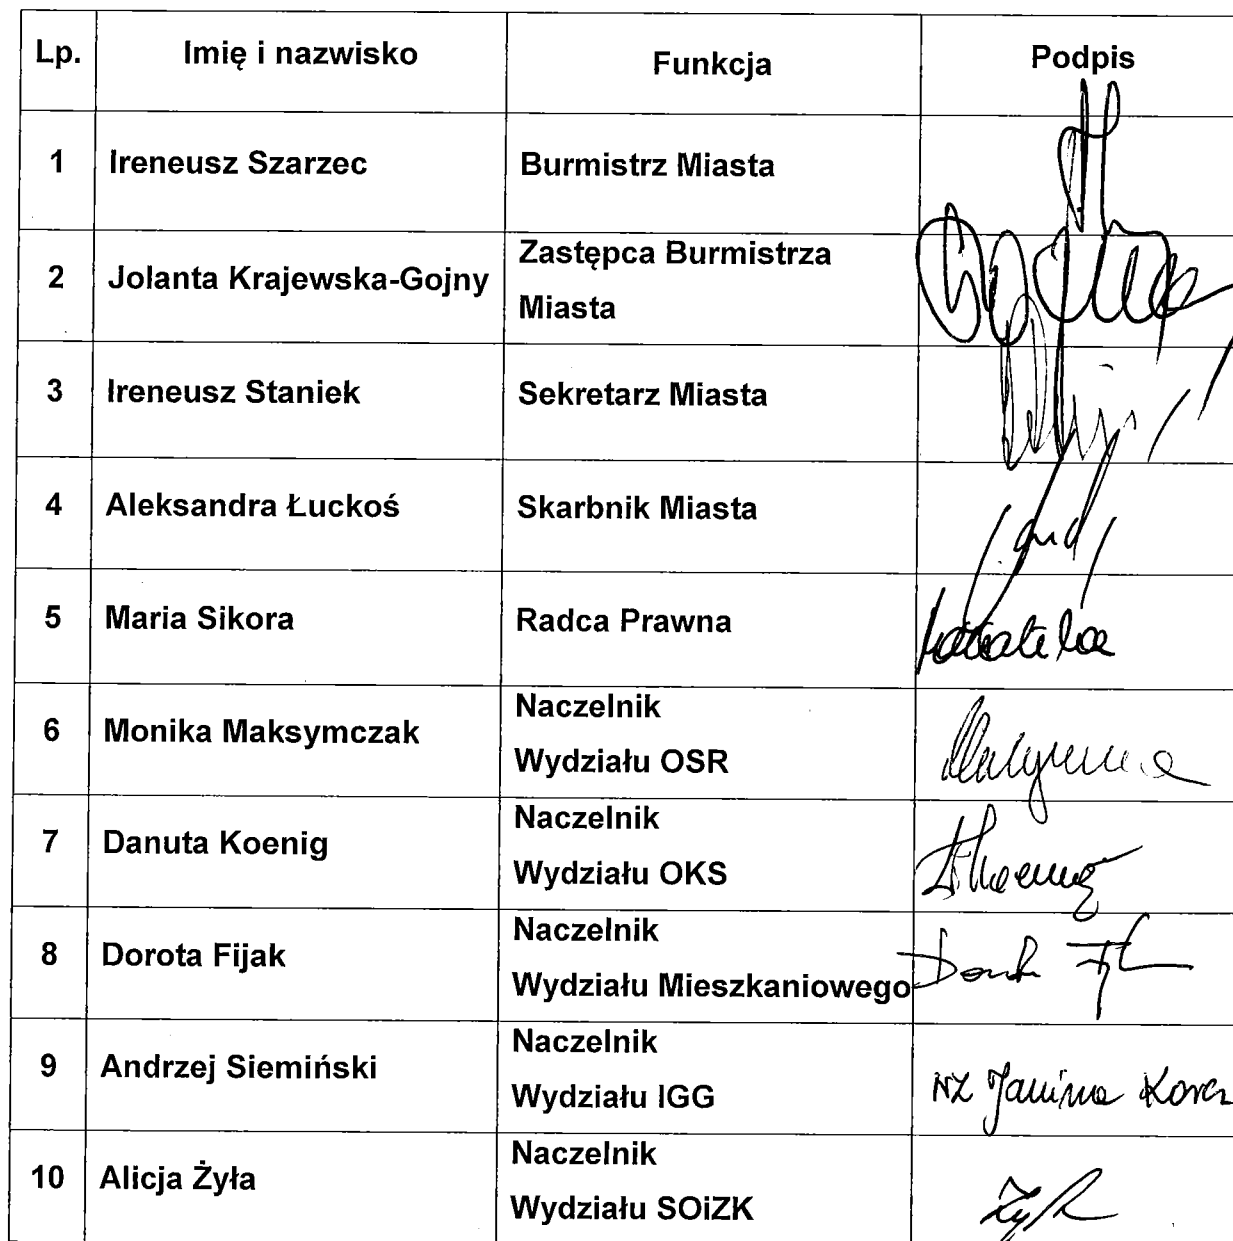 Lp. Imię i nazwisko Funkcja Podpis
1 Ireneusz Szarzec Burmistrz Miasta
2 Jolanta Krajewska-Gojny Zastępca Burmistrza
Miasta
3 Ireneusz Staniek Sekretarz Miasta
4 Aleksandra Łuckoś Skarbnik Miasta
5 Maria Sikora Radca Prawna
6 Monika Maksymczak Naczelnik
Wydziału OSR
7 Danuta Koenig Naczelnik
Wydziału OKS
8 Dorota Fijak Naczelnik
Wydziału Mieszkaniowego
9 Andrzej Siemiński Naczelnik
Wydziału IGG NZ Janina
10 Alicja Żyła Naczelnik
Wydziału SOiZK